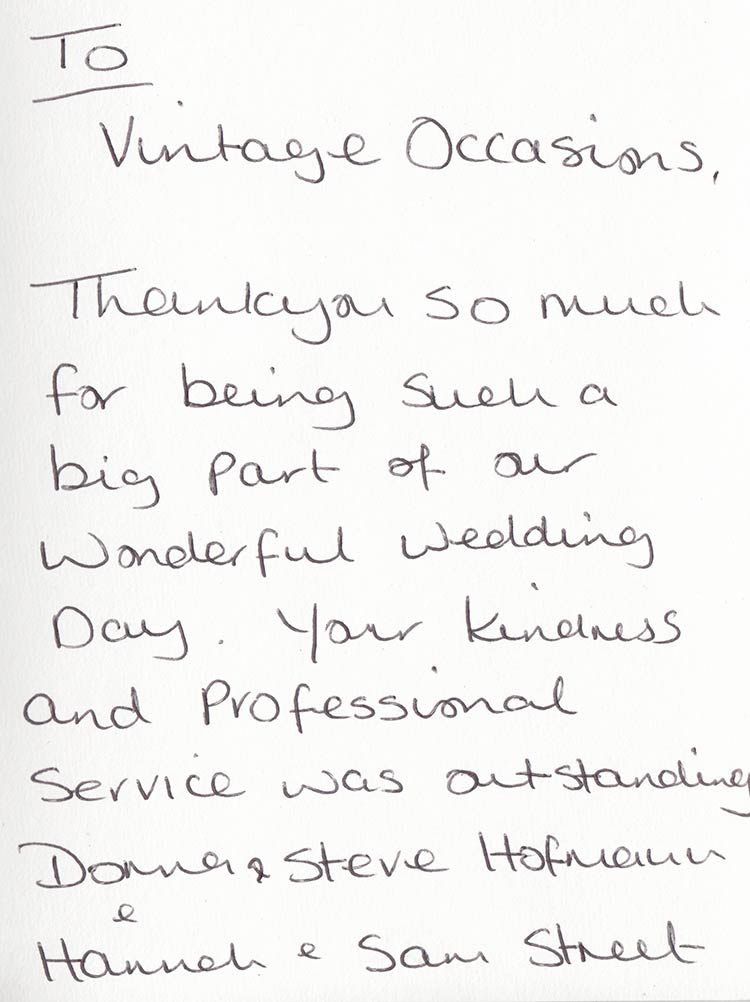 To
Vintage Occasions,
Thankyou so much
for being such a
big part of our
Wonderful wedding
Day. Your kindness
and Professional
Service was outstanding
Donna & Steve Hofmann
&
Hannah & Sam Street